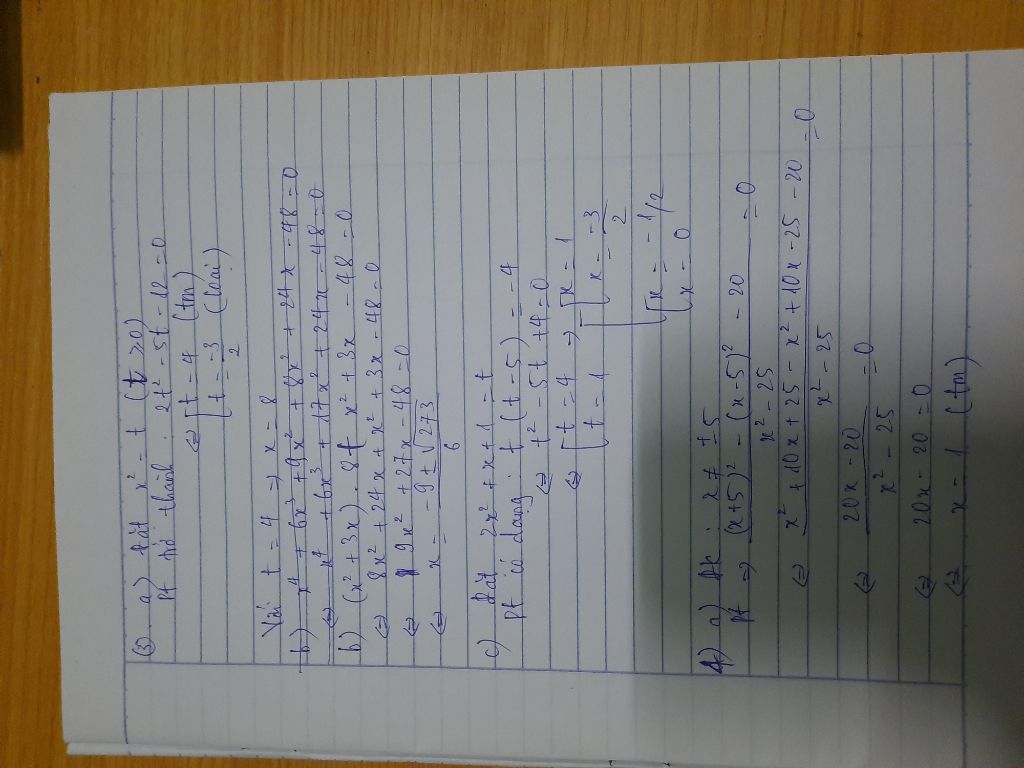 ③. a) Đặt x² = t (t ≥ 0)
Pt trở thành: 2t² - 5t - 12 = 0
⇔ [ t = 4 (tm)
t = -3/2 (loại)
Với t = 4 ⇒ x = 8
b) x⁴ + 6x³ + 9x² + 8x² + 24x - 48 = 0
⇔ x⁴ + 6x³ + 17x² + 24x - 48 = 0
b) (x² + 3x) . 8 + x² + 3x - 48 = 0
⇔ 8x² + 24x + x² + 3x - 48 = 0
⇔ 9x² + 27x - 48 = 0
⇔ x = (-9 ± √273)/6
c) Đặt 2x² + x + 1 = t
Pt có dạng: t (t - 5) = -4
⇔ t² - 5t + 4 = 0
⇔ [ t = 4 ⇒ [ x = 1
t = 1 x = -3/2
[ x = -1/2
x = 0
4) a) Đk: x ≠ ±5
Pt ⇒ ((x+5)² - (x-5)² - 20)/(x² - 25) = 0
⇔ (x² + 10x + 25 - x² + 10x - 25 - 20)/(x² - 25) = 0
⇔ (20x - 20)/(x² - 25) = 0
⇔ 20x - 20 = 0
⇔ x = 1 (tm)